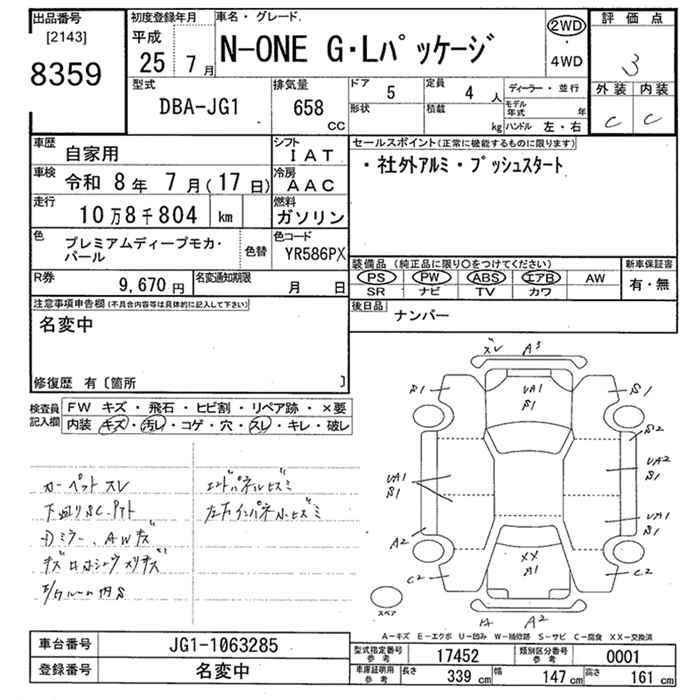 出品番号
[2143]
8359
初度登録年月
平成
25 7月
車名・グレード
N-ONE G・Lパッケージ
2WD
・
4WD
評価点
3
外装 内装
C C
型式
DBA-JG1
排気量
658
CC
ドア
5
定員
4 人
形状
積載
kg
ディーラー・並行
モデル年式 年
ハンドル 左・右
車歴
自家用
シフト
IAT
車検
令和 8年 7月(17日)
冷房
AAC
走行
10万8千804 km
燃料
ガソリン
色
プレミアムディープモカ・
パール
色替
色コード
YR586PX
R券
9,670 円
名変通知期限
月 日
セールスポイント(正常に機能するものに限ります)
・社外アルミ・プッシュスタート
装備品 (純正品に限り〇をつけてください)
PS PW ABS エアB AW
SR ナビ TV カワ
新車保証書
有・無
後日品
ナンバー
注意事項申告欄(不具合内容等は具体的に記入して下さい)
名変中
修復歴 有〔箇所 〕
検査員
記入欄
FW キズ・飛石・ヒビ割・リペア跡・×要
内装 キズ・汚レ・コゲ・穴・スレ・キレ・破レ
カーペットスレ
下廻りSC.PTト
ミラー、AWキズ
スレ A3
S1
UA1
S1
S1
S2
UA1
S1
UA2
S1
UA1
S1
A2
C2
XX
A1
C2
A2
スペア
A-キズ E-エクボ U-凹み W-補修跡 S-サビ C-腐食 XX-交換済
車台番号
JG1-1063285
登録番号
名変中
型式指定番号
参考
17452
類別区分番号
参考
0001
車庫証明用
参考
長さ
339 cm
幅
147 cm
高さ
161 cm